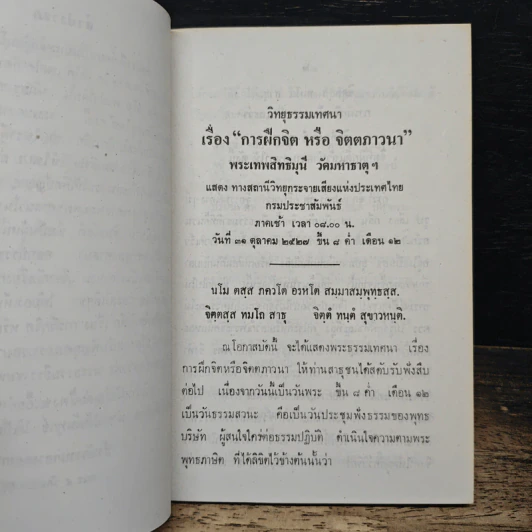 วิทยุธรรมเทศนา
เรื่อง “การฝึกจิต หรือ จิตตภาวนา”
พระเทพสิทธิมุนี วัดมหาธาตุ ฯ
แสดง ทางสถานีวิทยุกระจายเสียงแห่งประเทศไทย
กรมประชาสัมพันธ์
ภาคเช้า เวลา ๐๘.๐๐ น.
วันที่ ๓๑ ตุลาคม ๒๕๒๗ ขึ้น ๘ ค่ำ เดือน ๑๒
นโม ตสฺส ภควโต อรหโต สมฺมาสมฺพุทฺธสฺส.
จิตฺตสฺส ทมโถ สาธุ จิตฺตํ ทนฺตํ สุขาวหนฺติ.
ณโอกาสบัดนี้ จะได้แสดงพระธรรมเทศนา เรื่อง
การฝึกจิตหรือจิตตภาวนา ให้ท่านสาธุชนได้สดับรับฟังสืบ
ต่อไป เนื่องจากวันนี้เป็นวันพระ ขึ้น ๘ ค่ำ เดือน ๑๒
เป็นวันธรรมสวนะ คือเป็นวันประชุมฟังธรรมของพุทธ
บริษัท ผู้สนใจใคร่ต่อธรรมปฏิบัติ ดำเนินใจความตามพระ
พุทธภาษิต ที่ได้ลิขิตไว้ข้างต้นนั้นว่า